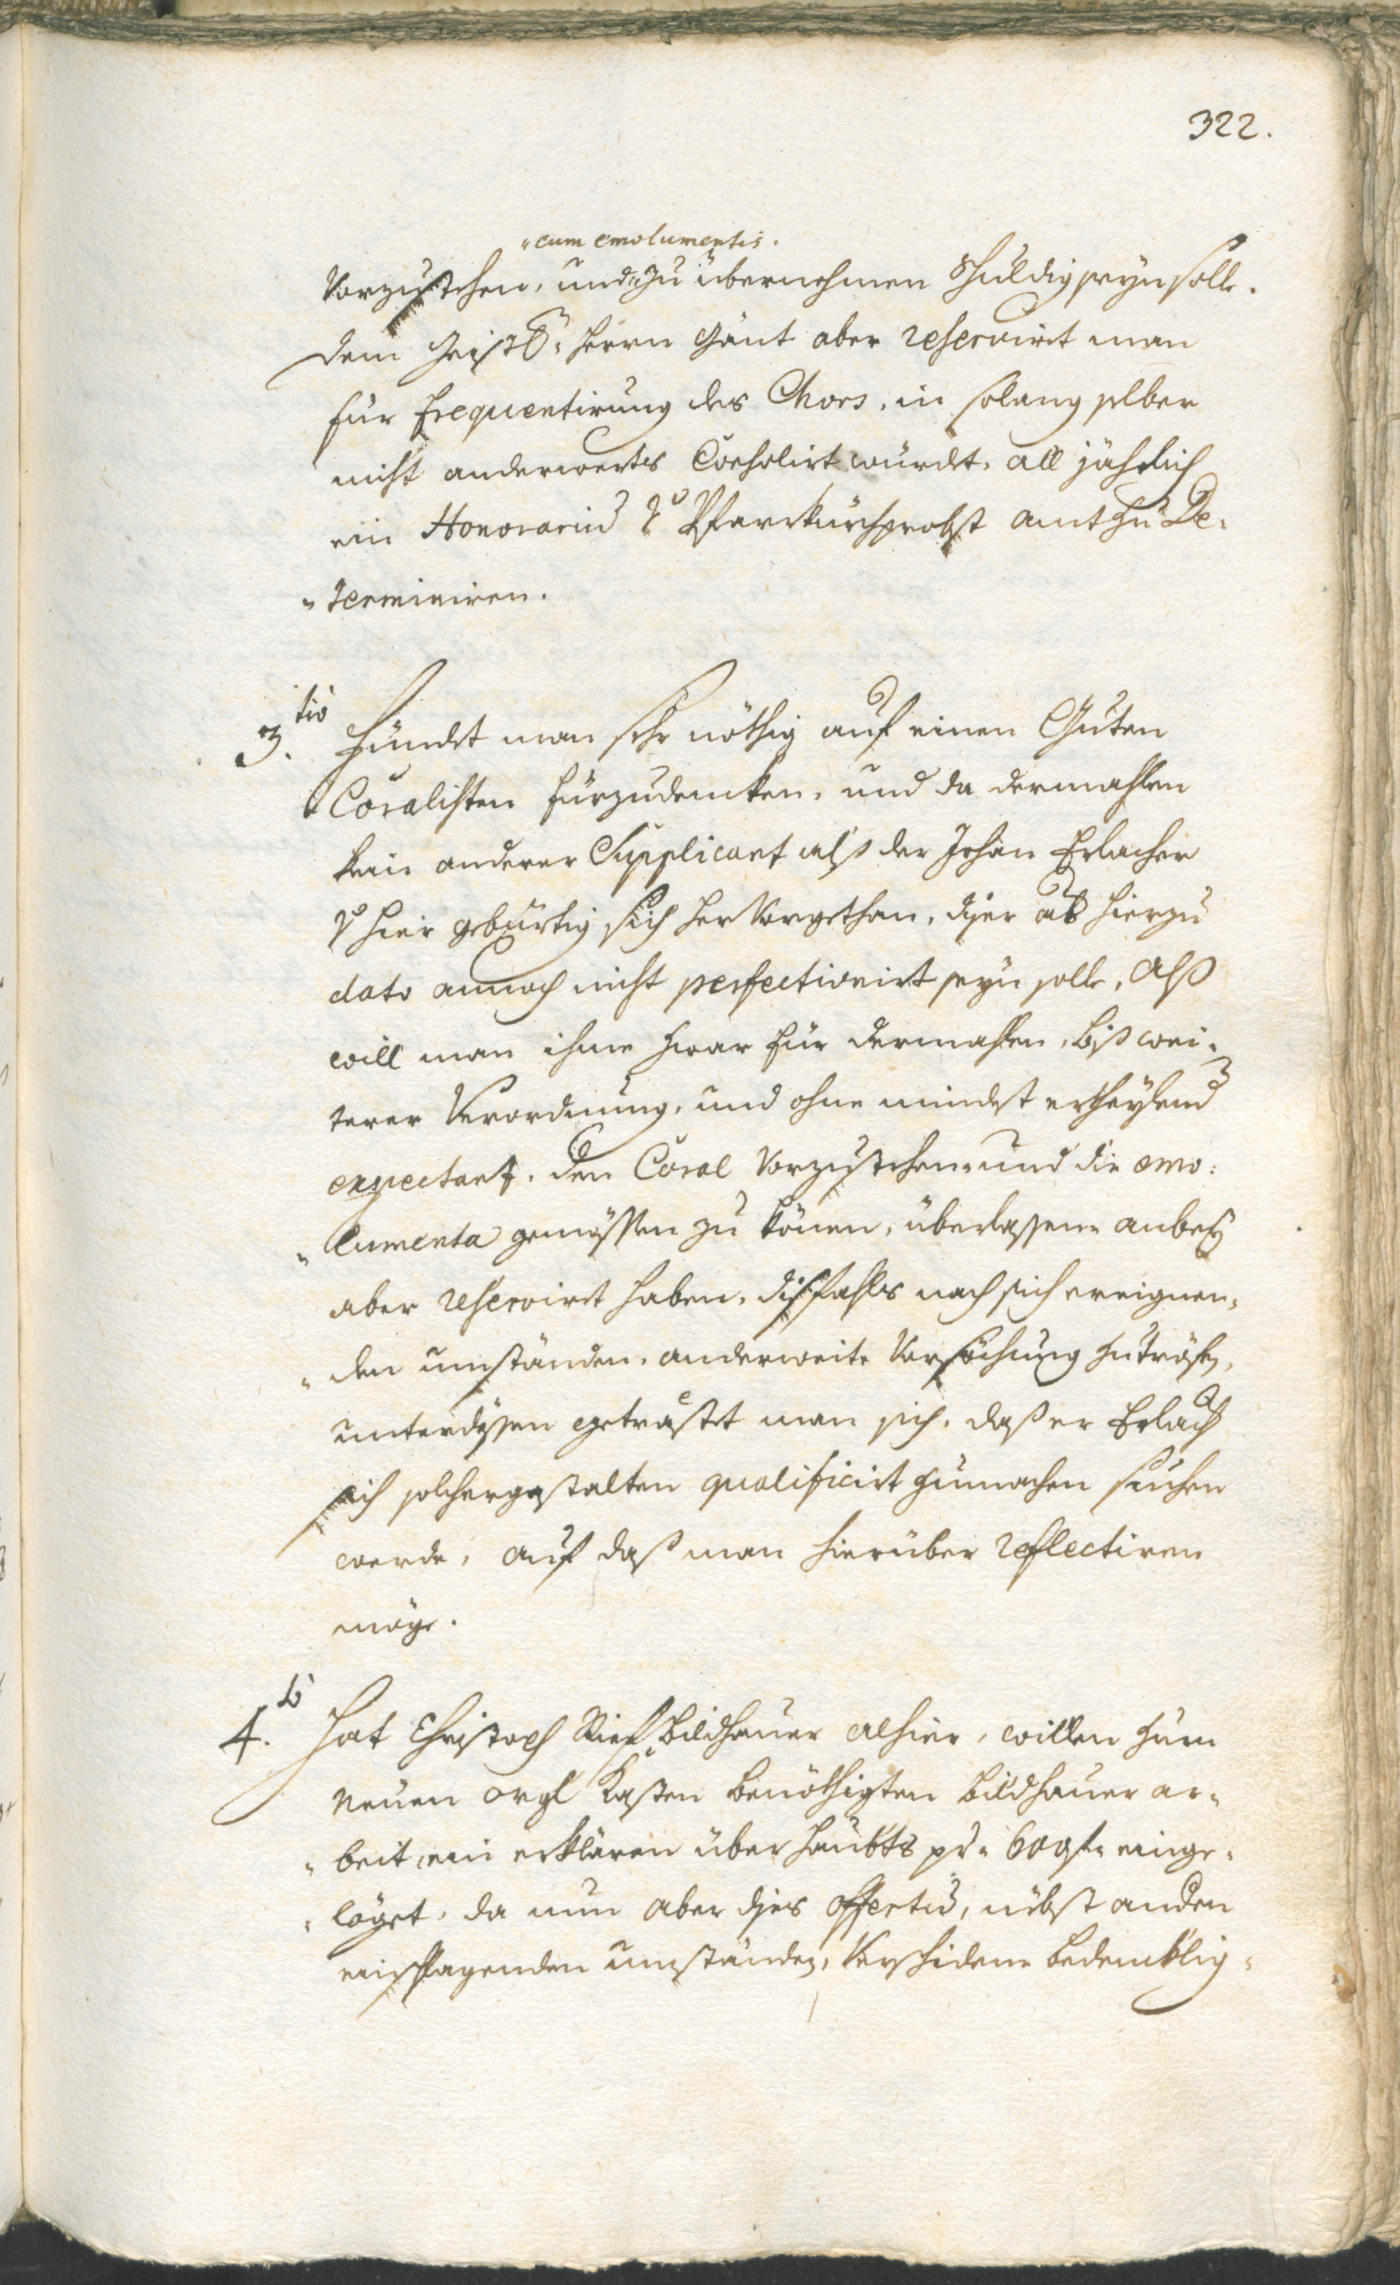 322.
"cum emolumentis.
Vorzustehen, und "zu übernehmen schuldig seyn solle.
dem geistl: herrn Gänt aber reservirt man
für frequentirung des Chors, in solang selber
nicht anderwerts würdt, all jährlich
ein Honorariu Pfarrkürchprobst amt zu De-
"terminiren.
3.tio Fündet man sehr nöthig auf einen Guten
Coralisten fürzudencken, und da dermahlen
kein anderer Supplicant alß der Johan Erlacher
hier gebürtig sich hervorgethan, dser ab hierzu
dato annoch nicht perfectionirt seyn solle, Alß
will man ihme zwar für dermahlen, biß wei-
terer Verordnung, und ohne mindest ertheylend
expectanz, den Coral Vorzustehen und die emo:
"lumenta genüssen zu könen, überlassen, anbey
aber reservirt haben, dißfahls nach sich ereignen-
"den umständen, anderweite Versöchung zu tröfen,
unterdessen getröstet man sich, daß er Erlach
sich solchergestalten qualificirt zumachen suchen
werde, auf daß man hierüber reflectiren
möge.
4.to Hat Christoph Bildhauer alhier, willen zum
Neuen orgl Kasten benöthigten bildhauer ar-
"beit, ein erklären überhaubts pr. 60 f. einge-
"löget, da nun aber dses offertu, nöbst anden
einschlagenden umständen, Verschidene bedencklig-